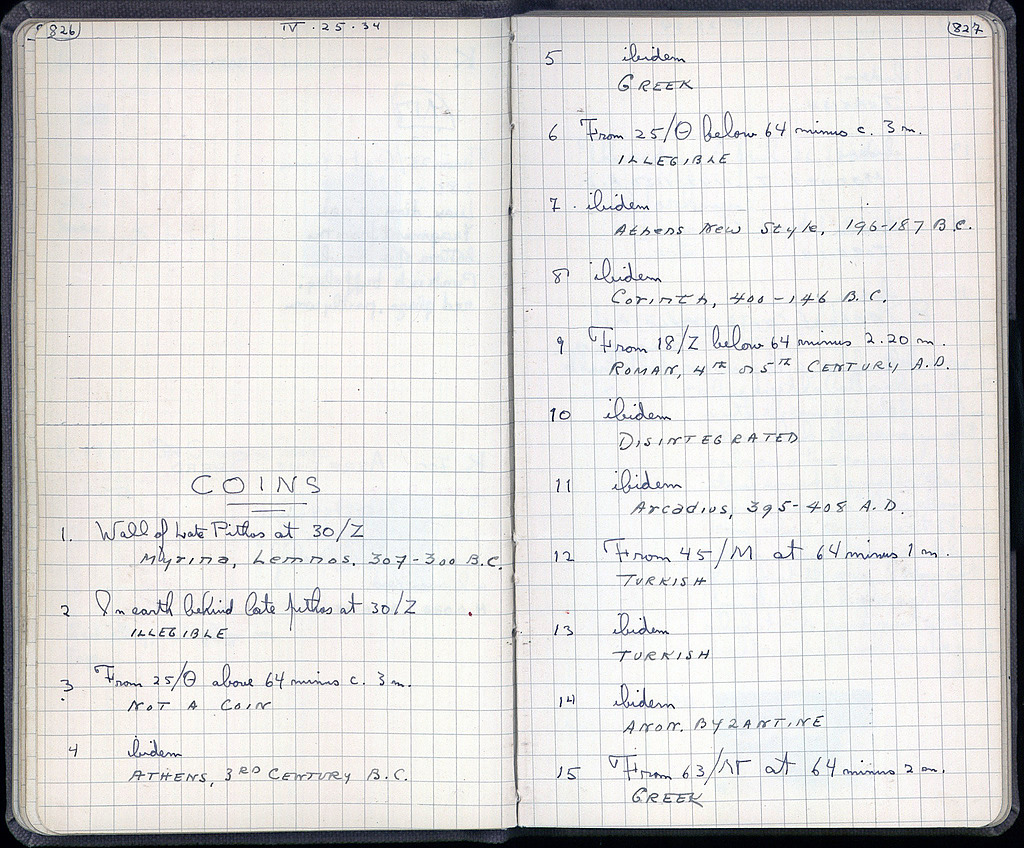 826
IV · 25 · 34
COINS
1. Wall of Late Pithos at 30/Z
Myrina, Lemnos, 307-300 B.C.
2 In earth behind late pithos at 30/Z
ILLEGIBLE
3 From 25/Θ above 64 minus c. 3 m.
NOT A COIN
4 ibidem
ATHENS, 3RD CENTURY B.C.
827
5 ibidem
GREEK
6 From 25/Θ below 64 minus c. 3 m.
ILLEGIBLE
7. ibidem
Athens New Style, 196-187 B.C.
8 ibidem
Corinth, 400-146 B.C.
9 From 18/Z below 64 minus 2.20 m.
ROMAN, 4TH or 5TH CENTURY A.D.
10 ibidem
DISINTEGRATED
11 ibidem
Arcadius, 395-408 A.D.
12 From 45/M at 64 minus 1 m.
TURKISH
13 ibidem
TURKISH
14 ibidem
ANON. BYZANTINE
15 From 63/ at 64 minus 2 m.
GREEK